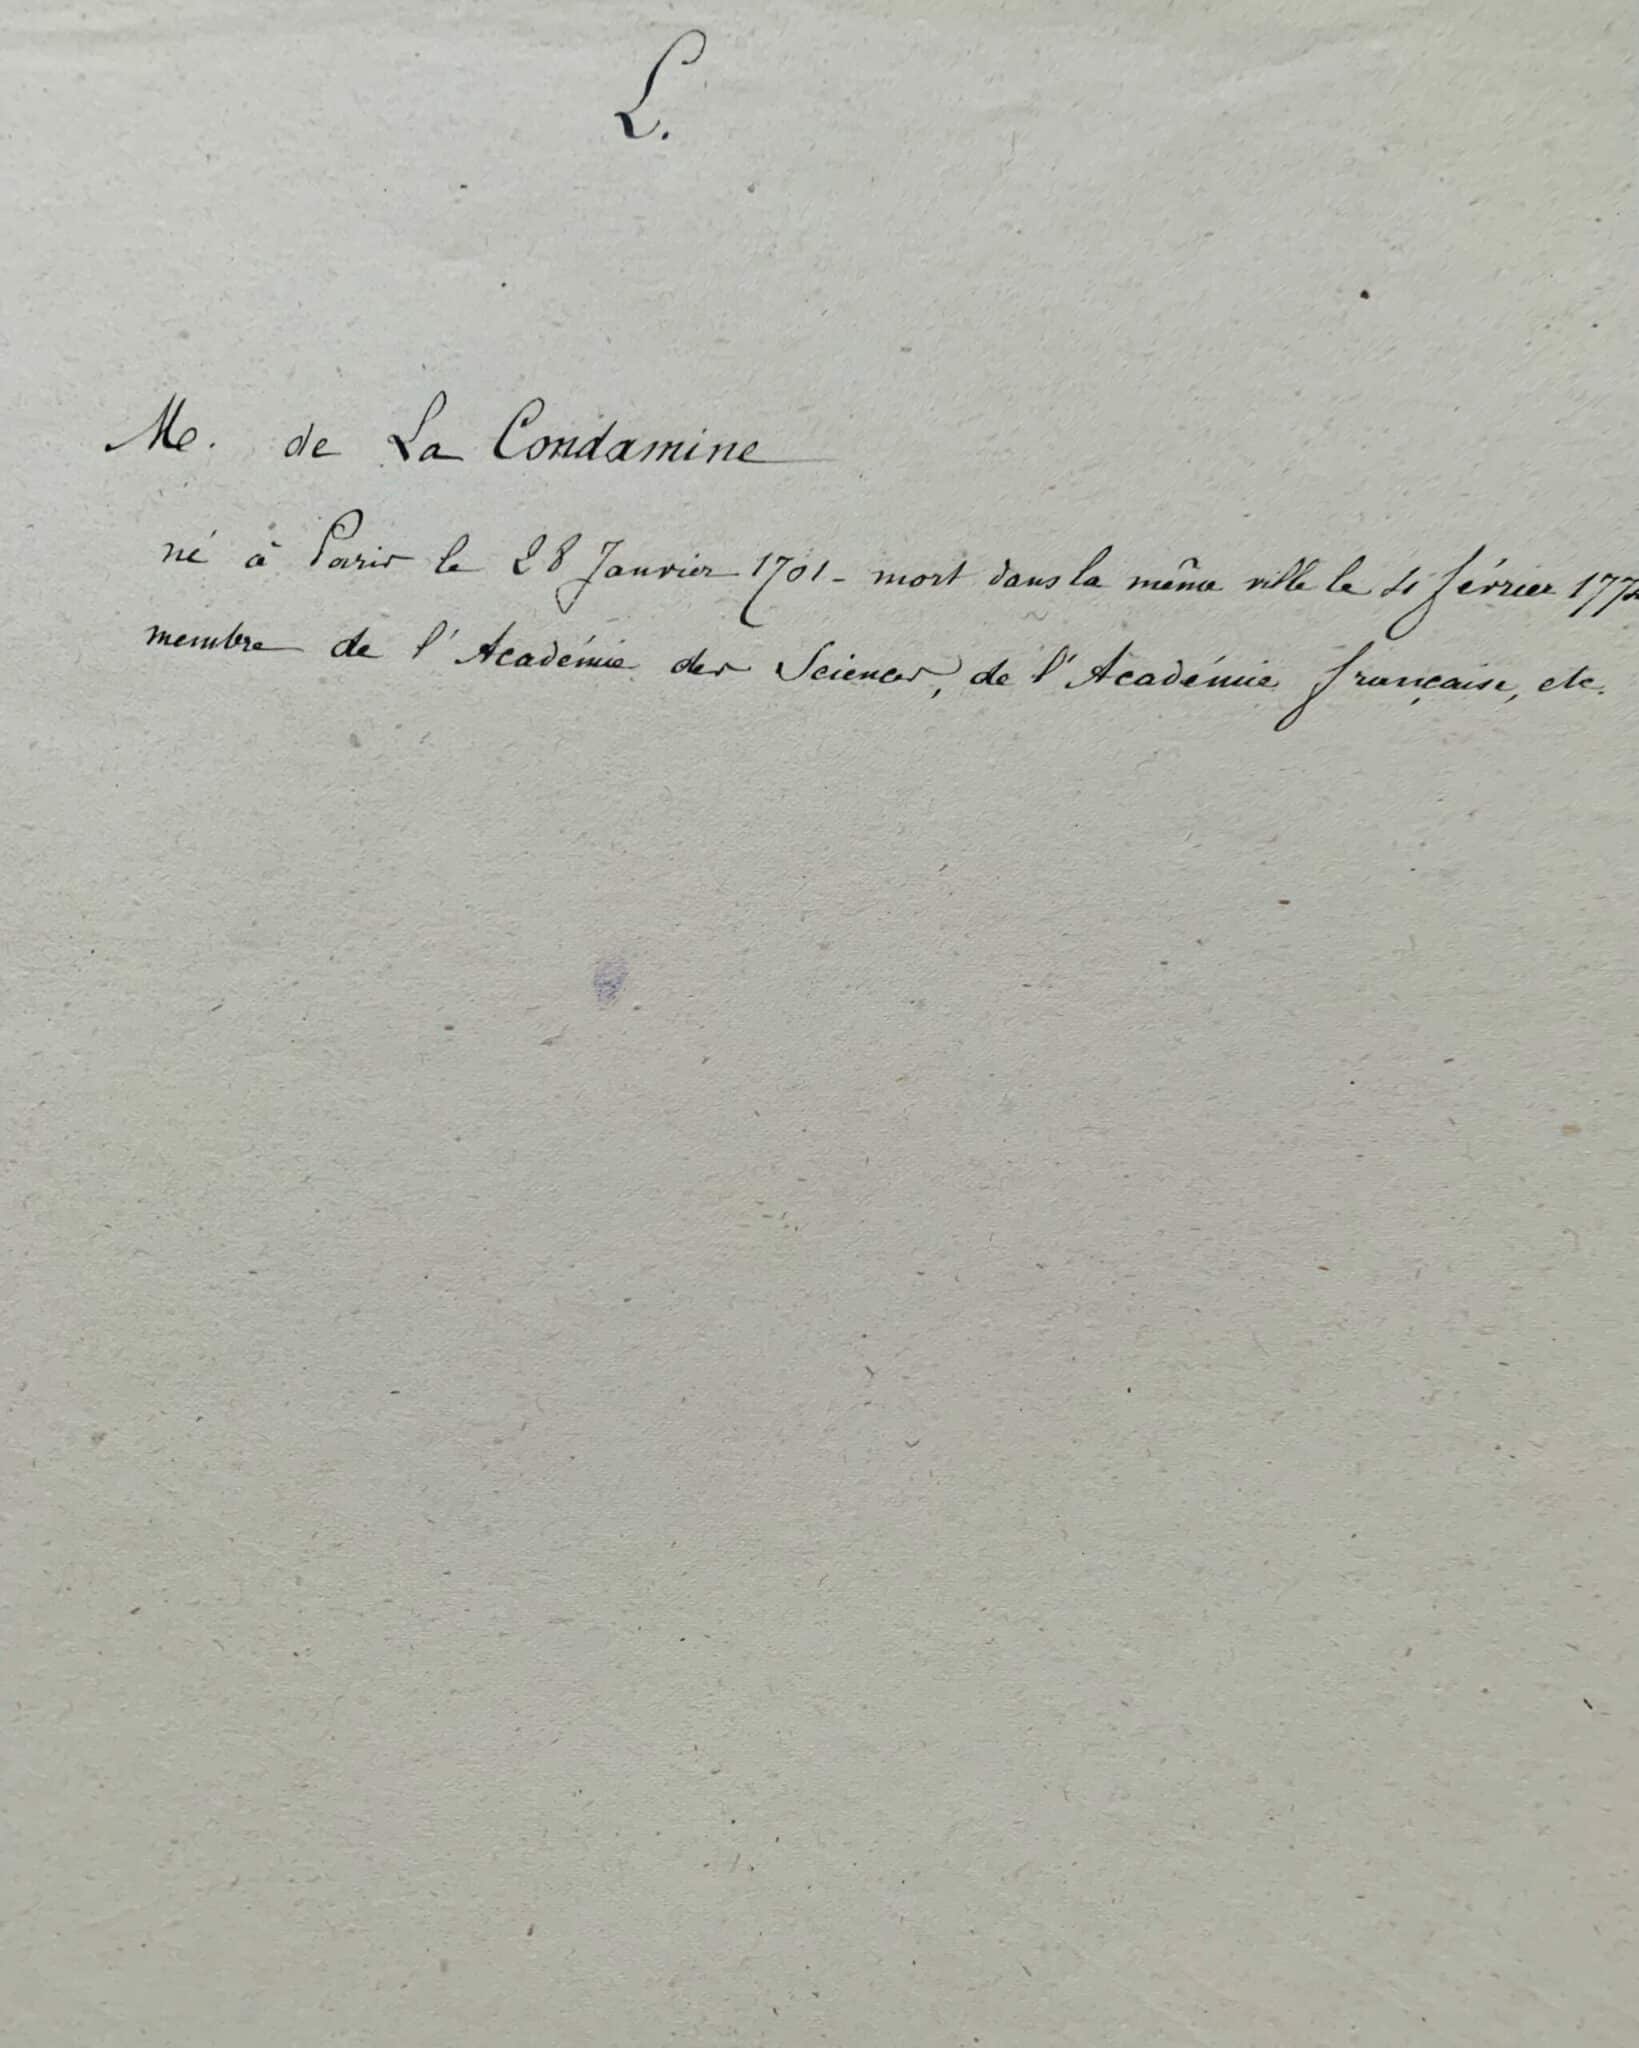 L.
M. de La Condamine
né à Paris le 28 Janvier 1701 - mort dans la même ville le 4 février 1774
membre de l'Académie des Sciences, de l'Académie française, etc.